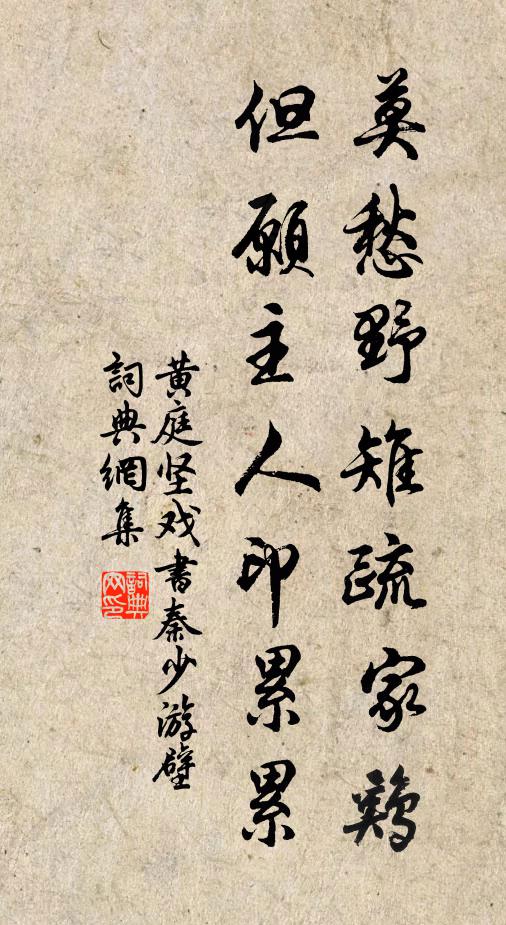 莫愁野雉疏家鷄
但願主人印累累
黄庭坚戏书秦少游壁
詞典網集
詞典网印